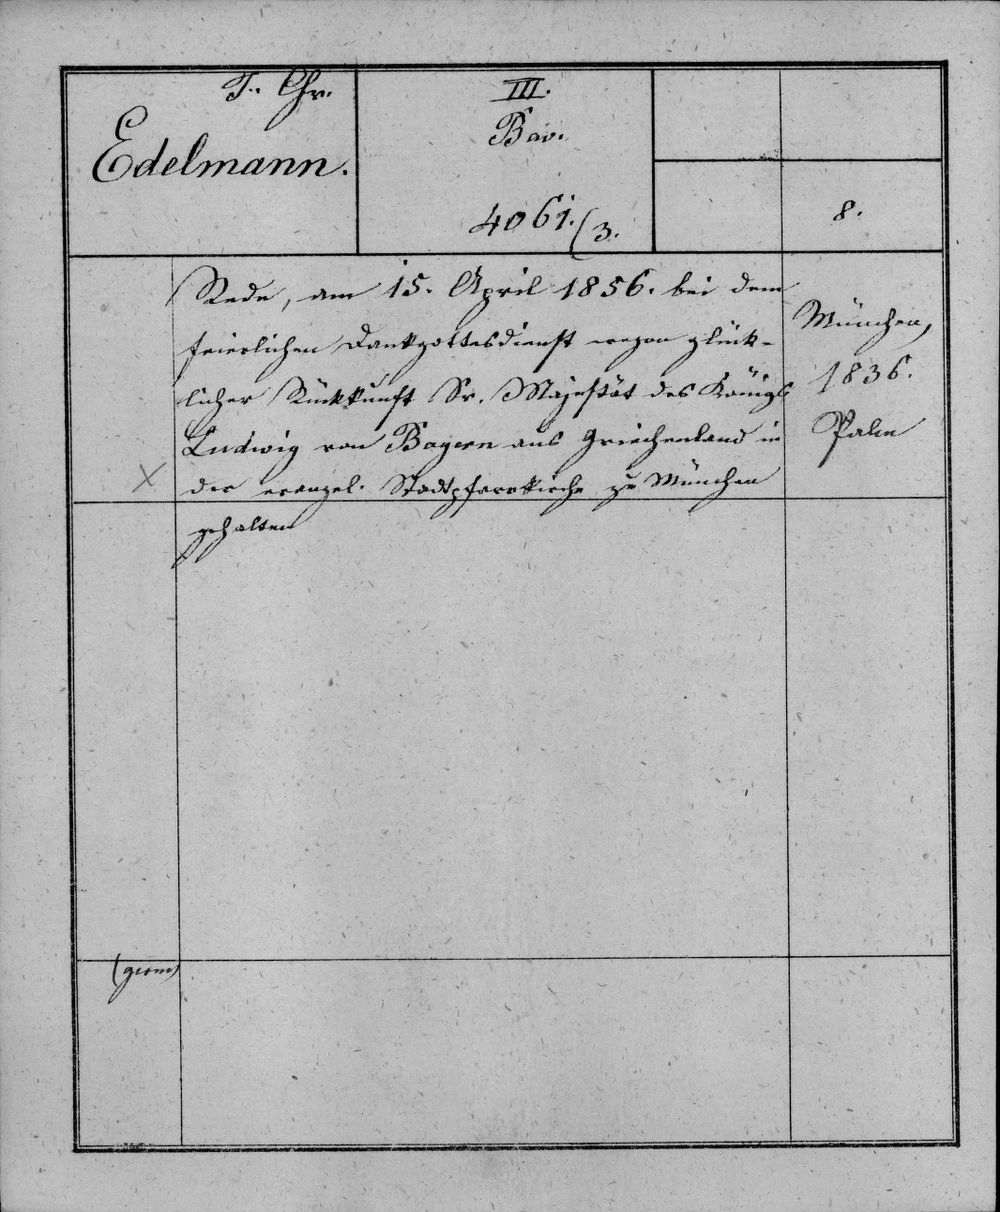 J. Chr.
Edelmann.
III.
Bav.
4061.(3.
8.
Rede, am 15. April 1856. bei dem
feierlichen Dankgottesdienst wegen glück-
licher Rückkunft Sr. Majestät des Königs
Ludwig von Bayern aus Griechenland in
der evangel. Stadtpfarrkirche zu München
gehalten
München,
1836.
Palm
X
(germ)